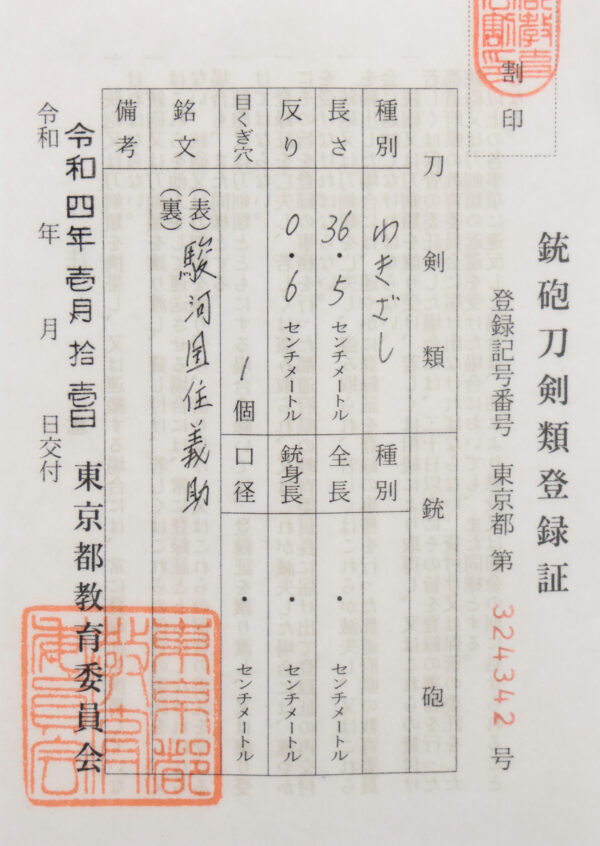 割印
銃砲刀剣類登録証
登録記号番号 東京都 第 324342 号
刀剣類
銃砲
種別 わきざし
種別
長さ 36・5センチメートル
全長 ・ センチメートル
反り 0・6センチメートル
銃身長 ・ センチメートル
目くぎ穴 1個
口径 ・ センチメートル
銘文 (表)駿河国住義助
(裏)
備考
令和四年壱月拾壱日
令和 年 月 日交付
東京都教育委員会
東京都教育委員会